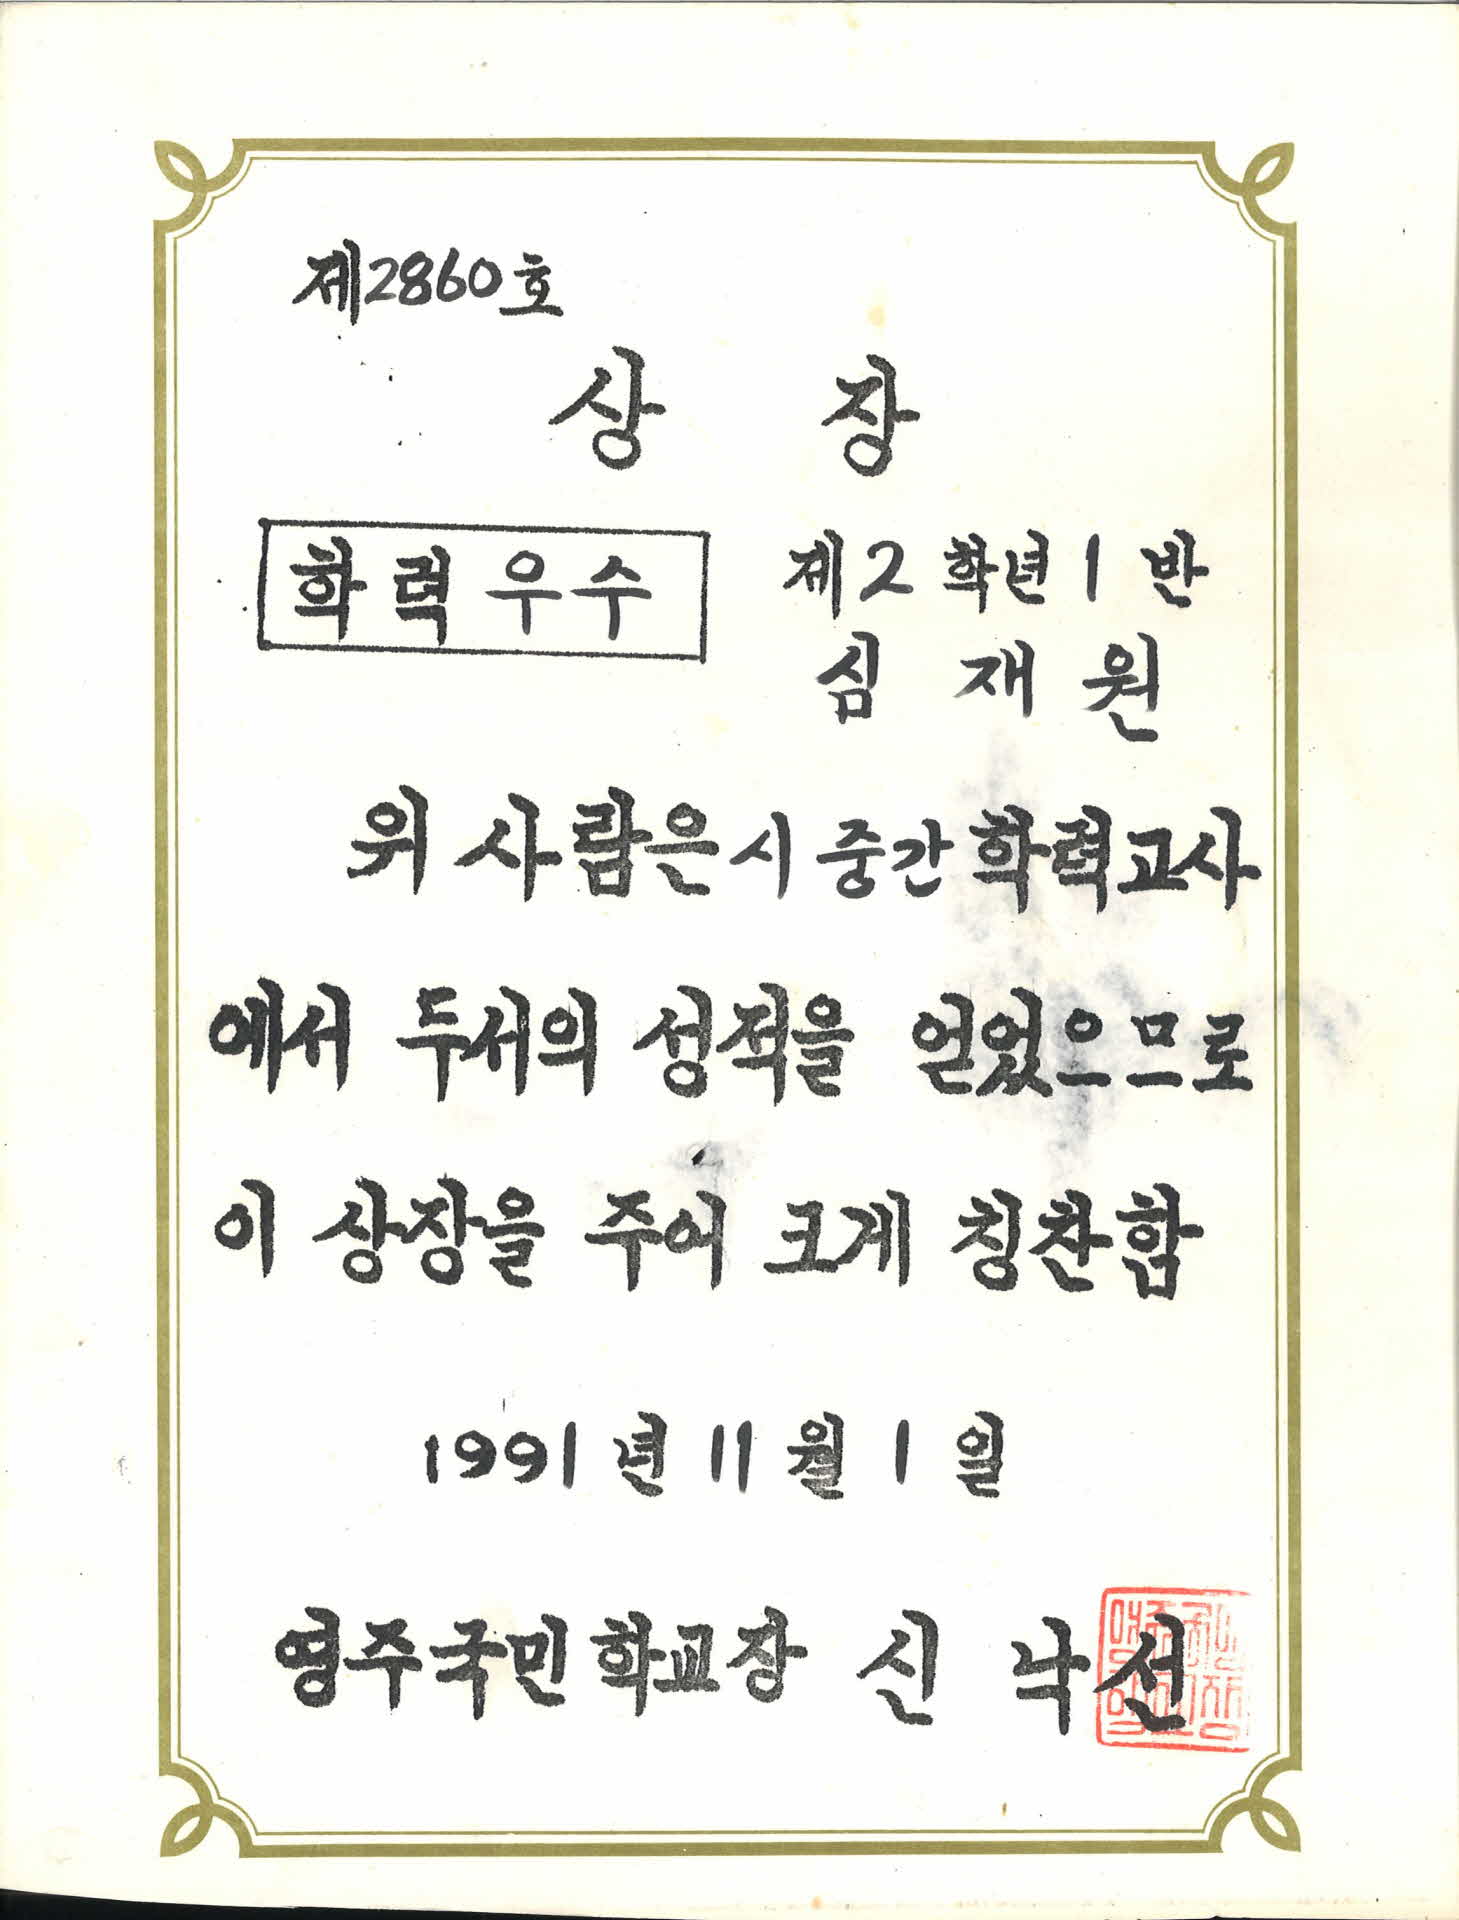 제2860호
상 장
학력우수
제2학년 1 반
심 재 원
위 사람은 시 중간 학력고사
에서 두서의 성적을 얻었으므로
이 상장을 주어 크게 칭찬함
1991년 11월 1일
영주국민학교장 신 낙 선